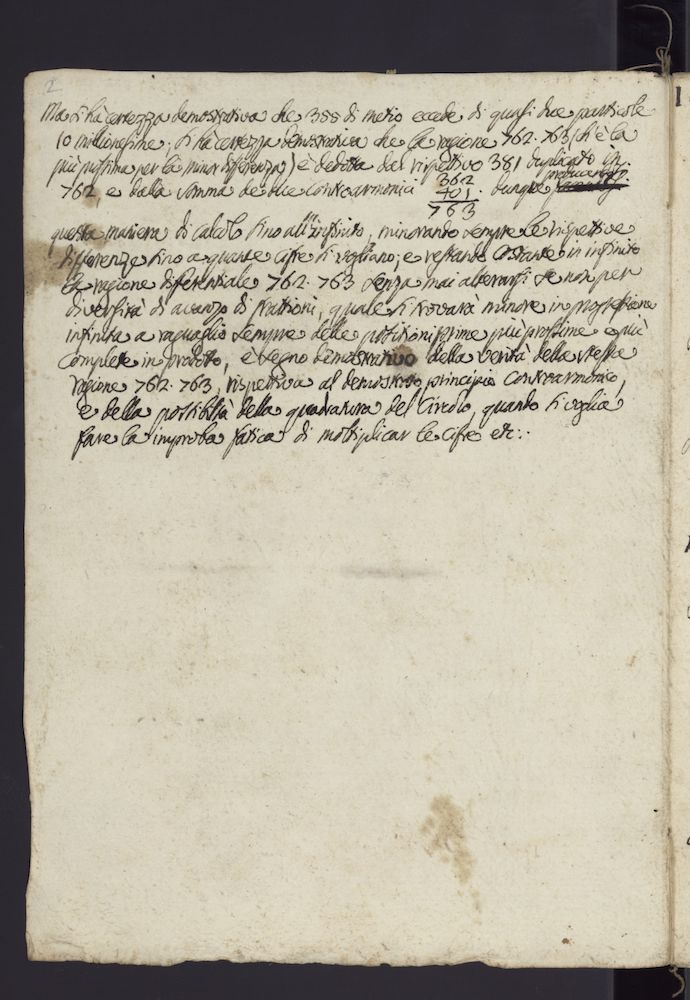 2
Ma si hà certezza demostrativa che 355 di metio eccede di quasi due particelle
10 millionesime; si hà certezza demostrativa che la ragione 762. 763 (ch'è la
più prossima per la minor differenza) è dedotta dal rispettivo 381 duplicato in
762 e dalla somma de due Contro armonici 362 401 763. dunque producendosi
questa maniera di calcolo sino all'infinito, minorando sempre le rispettive
differenze sino a quante cifre si vogliano; e restando costante in infinito
la ragione differentiale 762. 763 senza mai alterarsi se non per
diversità di avanzo di frattioni, quale si trovarà minore in progressione
infinita a raguaglio sempre delle positioni prime più prossime e più
complete in prodotto, è segno demostrativo della verità della stessa
ragione 762. 763, rispettiva al demostrato principio Contro armonico,
e della possibiltà della quadratura del Circolo, quando si voglia
fare la improba fatica di moltiplicar le cifre etc:.